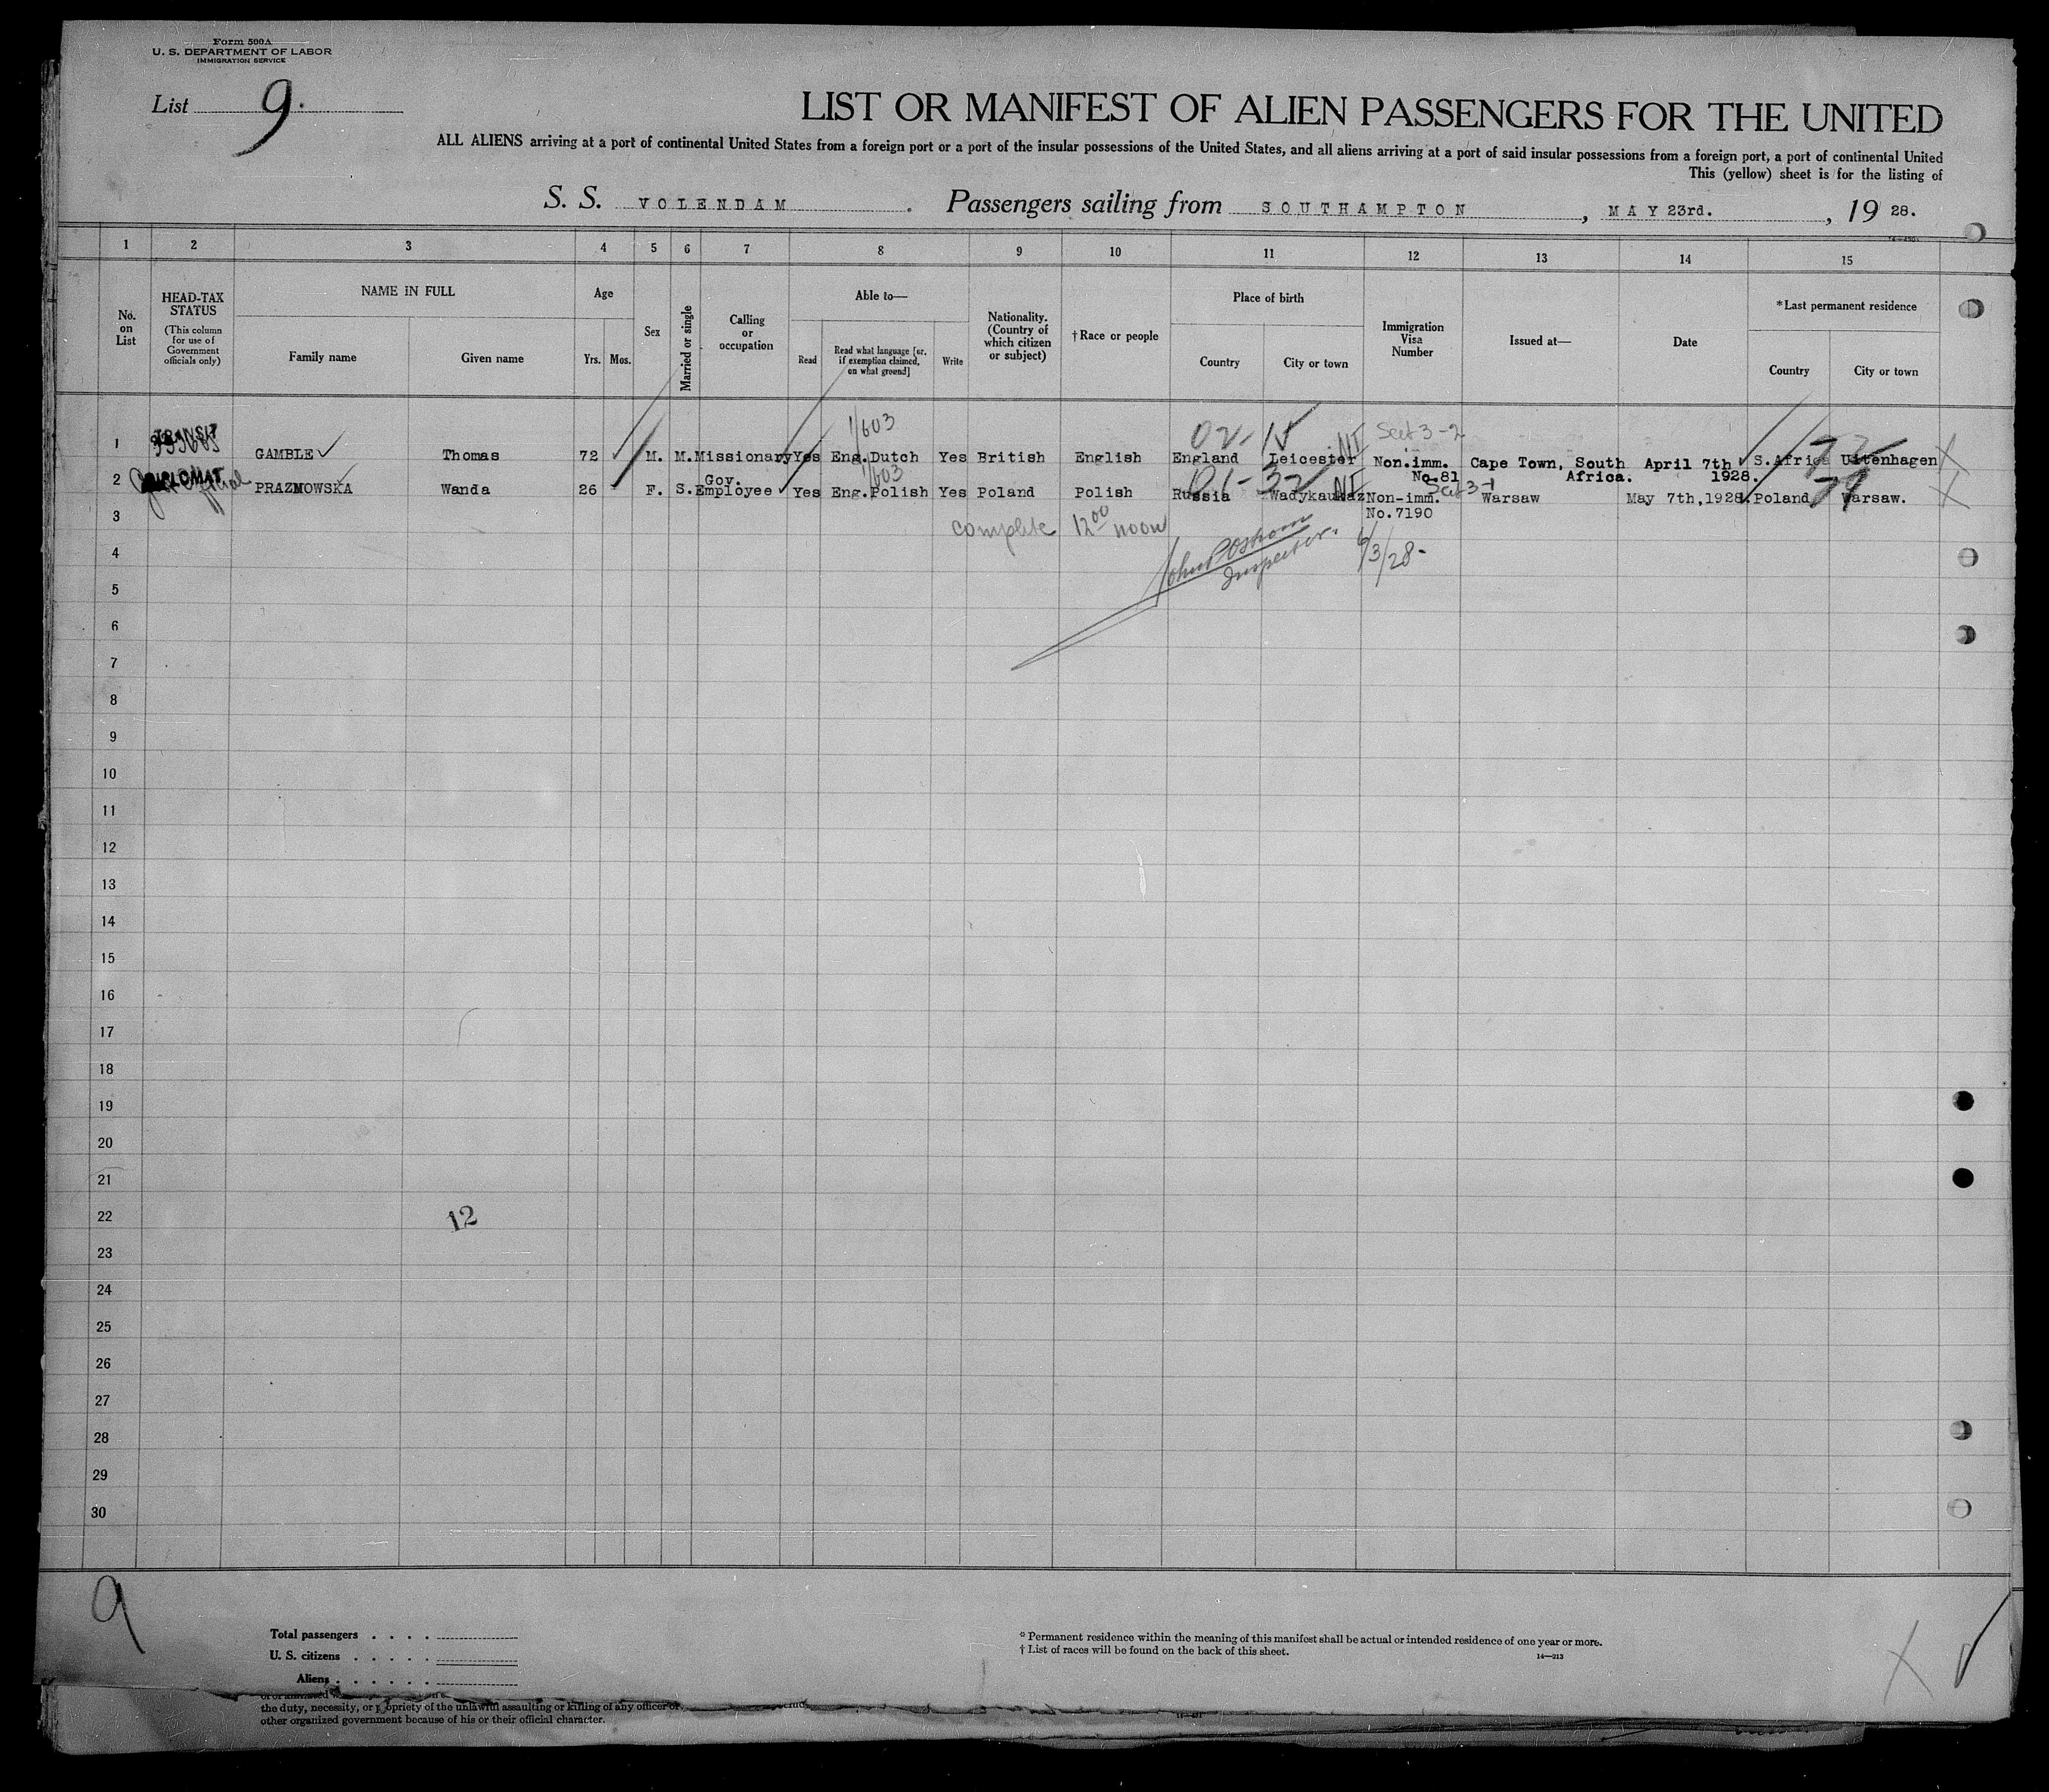 Form 500A
U. S. DEPARTMENT OF LABOR
IMMIGRATION SERVICE
List 9.
LIST OR MANIFEST OF ALIEN PASSENGERS FOR THE UNITED
ALL ALIENS arriving at a port of continental United States from a foreign port or a port of the insular possessions of the United States, and all aliens arriving at a port of said insular possessions from a foreign port, a port of continental United
This (yellow) sheet is for the listing of
S. S. VOLENDAM . Passengers sailing from SOUTHAMPTON , MAY 23rd. , 19 28.
1 2 3 4 5 6 7 8 9 10 11 12 13 14 15
No. on List
HEAD-TAX STATUS
(This column for use of Government officials only)
NAME IN FULL
Family name
Given name
Age
Yrs. Mos.
Sex
Married or single
Calling or occupation
Able to—
Read
Read what language [or, if exemption claimed, on what ground]
Write
Nationality. (Country of which citizen or subject)
†Race or people
Place of birth
Country
City or town
Immigration Visa Number
Issued at—
Date
*Last permanent residence
Country
City or town
1/603 02-15 NI Sect 3-2 72
1 TRANSIT GAMBLE Thomas 72 M. M. Missionary Yes Eng.Dutch Yes British English England Leicester Non.imm. No.81 Cape Town, South Africa. April 7th 1928. S.Africa Uitenhagen
1/603 NI Sect 3-1 79
2 DIPLOMAT PRAZMOWSKA Wanda 26 - F. S. Gov. Employee Yes Eng.Polish Yes Poland Polish Russia Wadykaukaz Non-imm. No.7190 Warsaw May 7th,1928. Poland Warsaw.
3
complete 12 00 noon
Inspector. 6/3/28-
4
5
6
7
8
9
10
11
12
13
14
15
16
17
18
19
20
21
22
12
23
24
25
26
27
28
29
30
9
Total passengers . . . .
U. S. citizens . . . . .
Aliens . . . . . .
* Permanent residence within the meaning of this manifest shall be actual or intended residence of one year or more.
† List of races will be found on the back of this sheet.
14—213
the duty, necessity, or propriety of the unlawful assaulting or killing of any officer or
other organized government because of his or their official character.